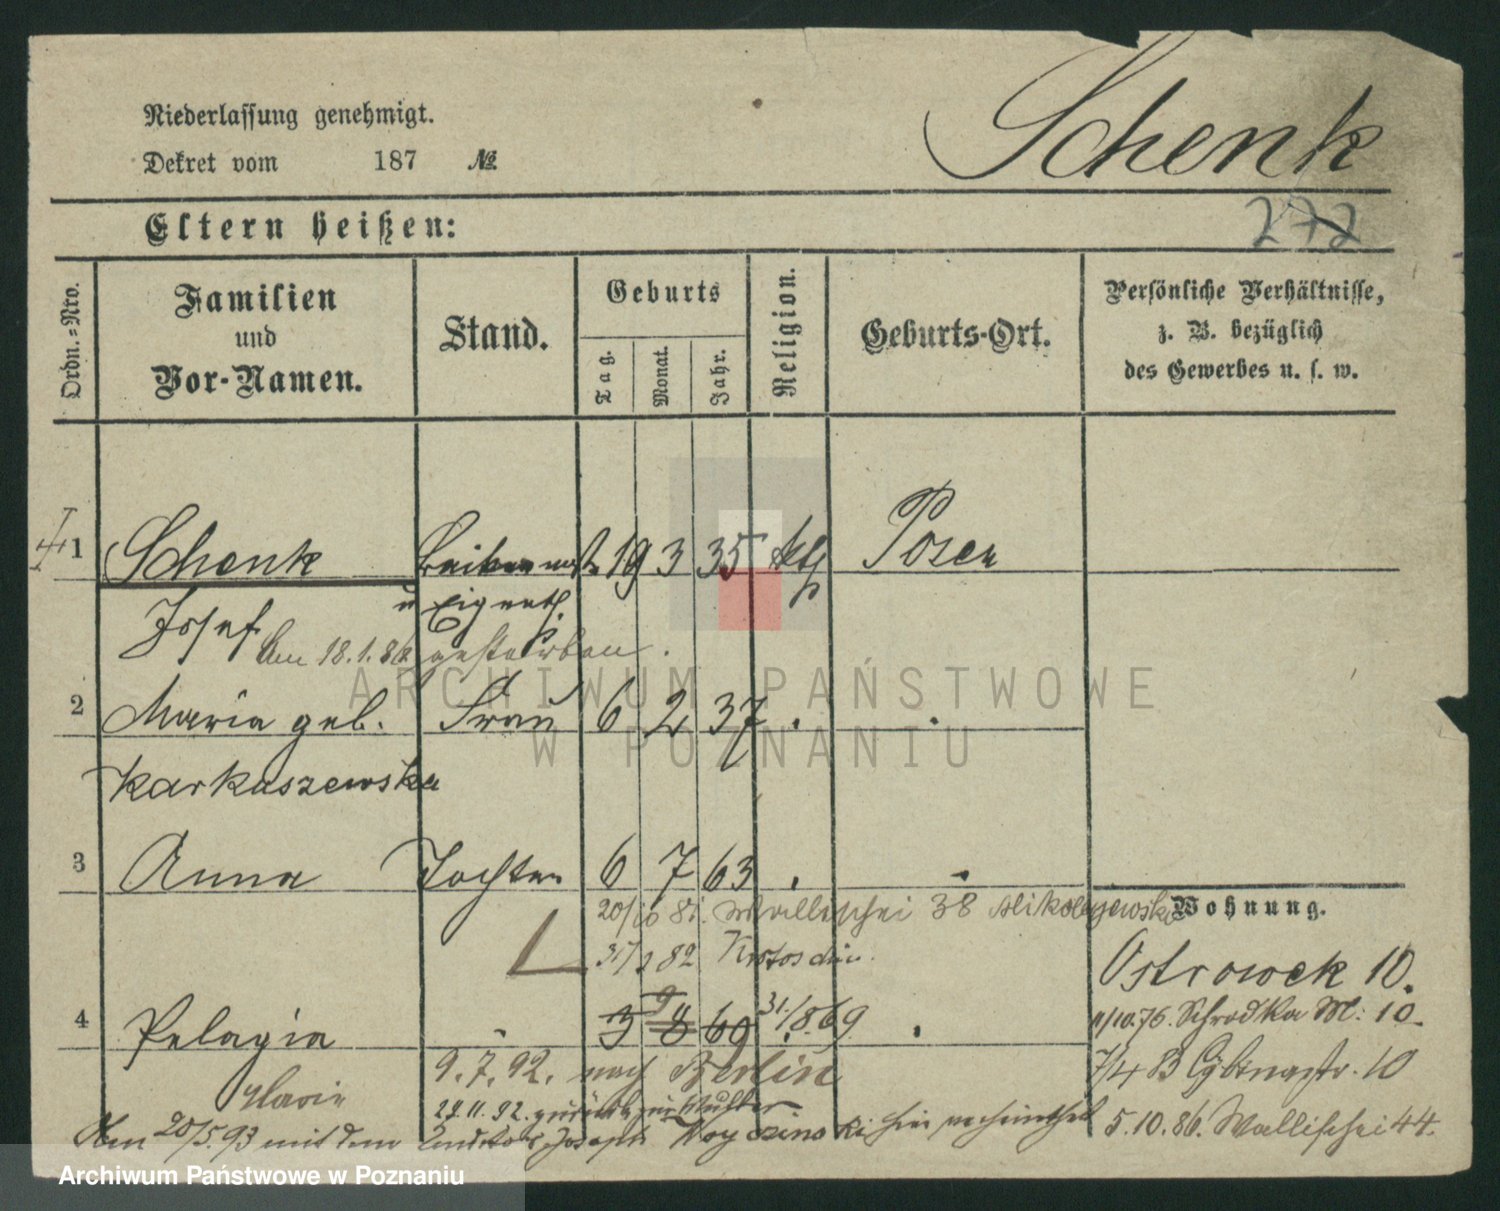 Niederlassung genehmigt.
Dekret vom 187 №
Schenk
272
Eltern heißen:
Ordn.-Nro.
Familien
und
Vor-Namen.
Stand.
Geburts
Tag.
Monat.
Jahr.
Religion.
Geburts-Ort.
Persönliche Verhältnisse,
z. B. bezüglich
des Gewerbes u. s. w.
1 Schenk 19 3 35 kth Posen
Josef u Eigenth.
Am 18.1.86 gestorben.
2 Maria geb. Frau 6 2 37 . .
Karkuszewska
3 Anna Tochter 6 7 63 . .
20/10 81. Wallischei 38
82 Krotoschin.
Wohnung.
Ostrowek 10.
4 Pelagia - 3 8 60 31./8.69 .
9
11/10.76. Schrodka M: 10.
9.7.92. nach Berlin
7/4 83 Cybinastr. 10
Maria
24.11.92. zurück zur Mutter
5.10.86. Wallischei 44.
Am 20/5.93 mit dem Joseph hier verheirathet
ARCHIWUM PAŃSTWOWE
W POZNANIU
Archiwum Państwowe w Poznaniu